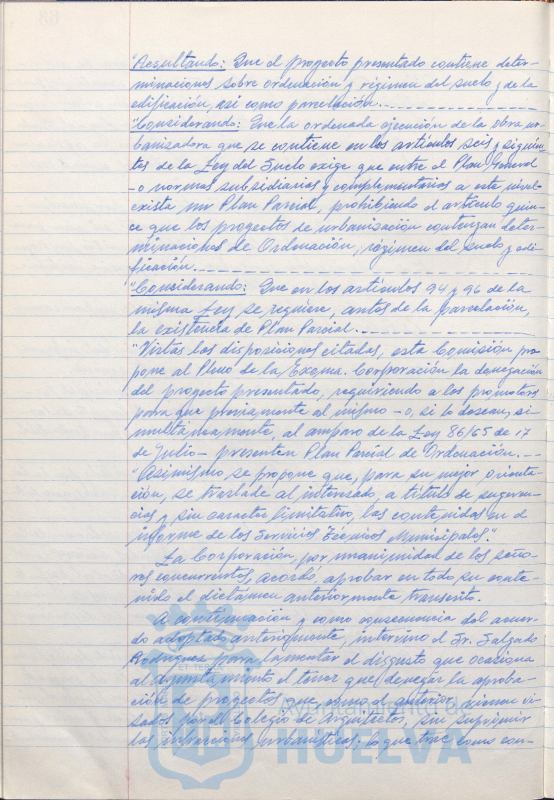 "Resultando: Que el proyecto presentado contiene deter-
minaciones sobre ordenación y régimen del suelo y de la
edificación, asi como parcelación.
"Considerando: Que la ordenada ejecución de la obra ur-
banizadora que se contiene en los artículos seis y siguien-
tes de la Ley del Suelo exige que entre el Plan General
-o normas subsidiarias y complementarias a este nivel-
exista un Plan Parcial, prohibiendo el artículo quin-
ce que los proyectos de urbanización contengan deter-
minaciones de Ordenación, régimen del suelo y edi-
ficación.
"Considerando: Que en los artículos 94 y 96 de la
misma Ley se requiere, antes de la parcelación,
la existencia de Plan Parcial.
"Vistas las disposiciones citadas, esta Comisión pro-
pone al Pleno de la Excma. Corporación la denegación
del proyecto presentado, requiriendo a los promotores
para que previamente al mismo -o, si lo desean, si-
multáneamente, al amparo de la Ley 86/65 de 17
de Julio- presenten Plan Parcial de Ordenación.
"Asimismo se propone que, para su mejor orienta-
ción, se traslade al interesado, a título de sugeren-
cias y sin carácter limitativo, las contenidas en el
informe de los Servicios Técnicos Municipales".
La Corporación, por unanimidad de los seño-
res concurrentes, acordó, aprobar en todo su conte-
nido el dictámen anteriormente transcrito.
A continuación y como consecuencia del acuer-
do adoptado anteriormente, intervino el Sr. Salgado
Rodriguez para lamentar el disgusto que ocasiona
al Ayuntamiento el tener que denegar la aproba-
ción de proyectos que, como el anterior, vienen vi-
sados por el Colegio de Arquitectos, sin
las infracciones urbanísticas; lo que trae como con-
Ayuntamiento de
HUELVA